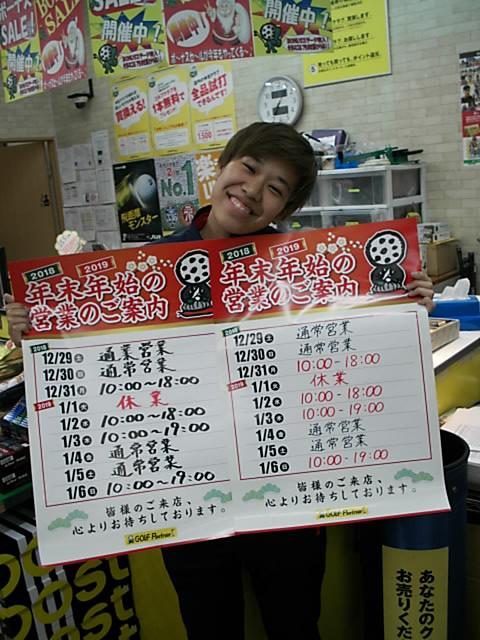 開催中!
SALE!
開催中!
買換える!
1本無料で
全品試打
できるんです!
1,500
飛距離
モンスター
No.1
2018
2019
年末年始の
営業のご案内
2018
12/29 土 通業営業
12/30 日 通常営業
12/31 月 10:00~18:00
2019
1/1 火 休業
1/2 水 10:00~18:00
1/3 木 10:00~19:00
1/4 金 通常営業
1/5 土 通常営業
1/6 日 10:00~19:00
皆様のご来店、
心よりお待ちしております。
GOLF Partner
2018
2019
年末年始の
営業のご案内
2018
12/29 土 通常営業
12/30 日 通常営業
12/31 月 10:00-18:00
2019
1/1 火 休業
1/2 水 10:00-18:00
1/3 木 10:00-19:00
1/4 金 通常営業
1/5 土 通常営業
1/6 日 10:00-19:00
皆様のご来店、
心よりお待ちしております。
GOLF Partner
あなたのク
お売りくだ